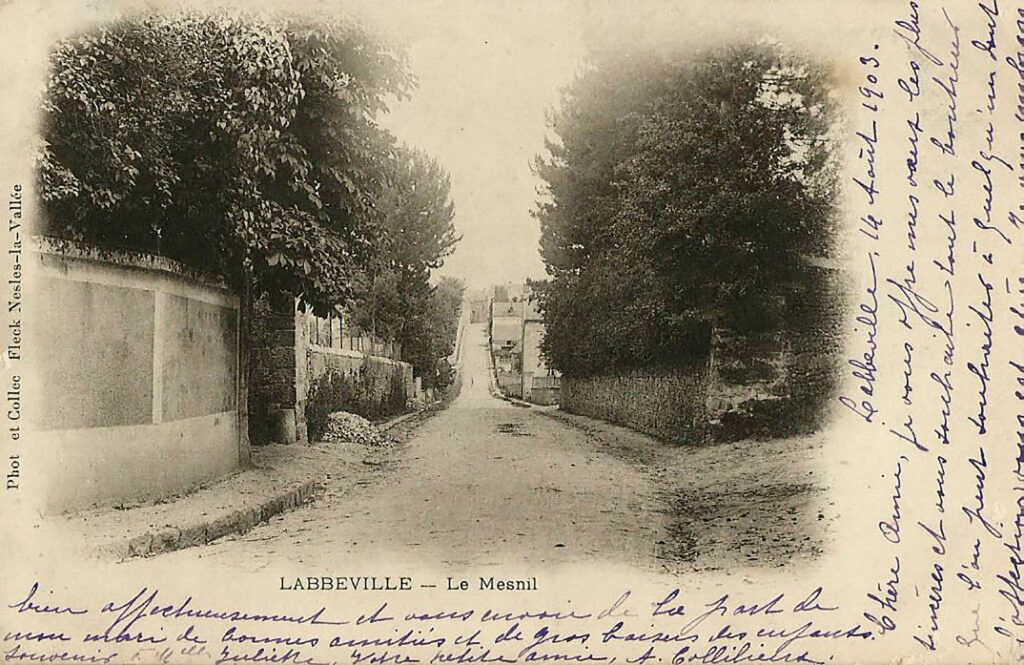 Phot et Collec Fleck Nesles-la-Vallée
LABBEVILLE — Le Mesnil
Labbeville, 14 Août 1903.
Chère Amie, je vous offre mes vœux les plus
sincères et vous souhaite tout le bonheur
que l'on peut souhaiter à quelqu'un dont
l'affection vous est
bien affectueusement et vous envoie de la part de
mon mari de bonnes amitiés et de gros baisers des enfants.
souvenir à Melle Juliette, Votre petite amie, A.